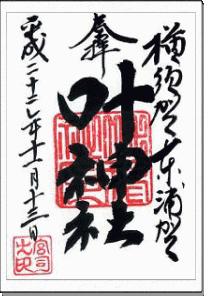 横須賀東浦賀
奉拝
叶神社
平成二十二年十一月十三日
宮司之印